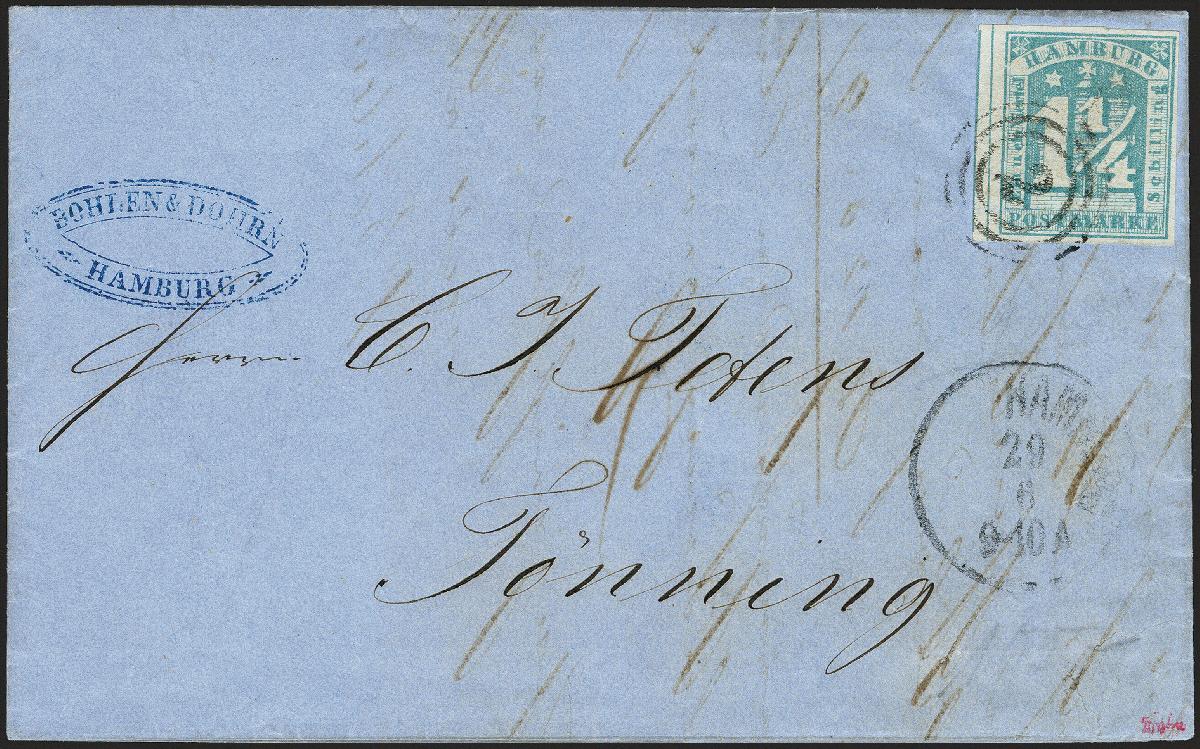 HAMBURG
1 1/4
Schilling
POSTMARKE
2
BOHLEN & DOHRN
HAMBURG
Herrn
C. J. Tetens
Tönning
HAMBURG
29
6
9-10 A